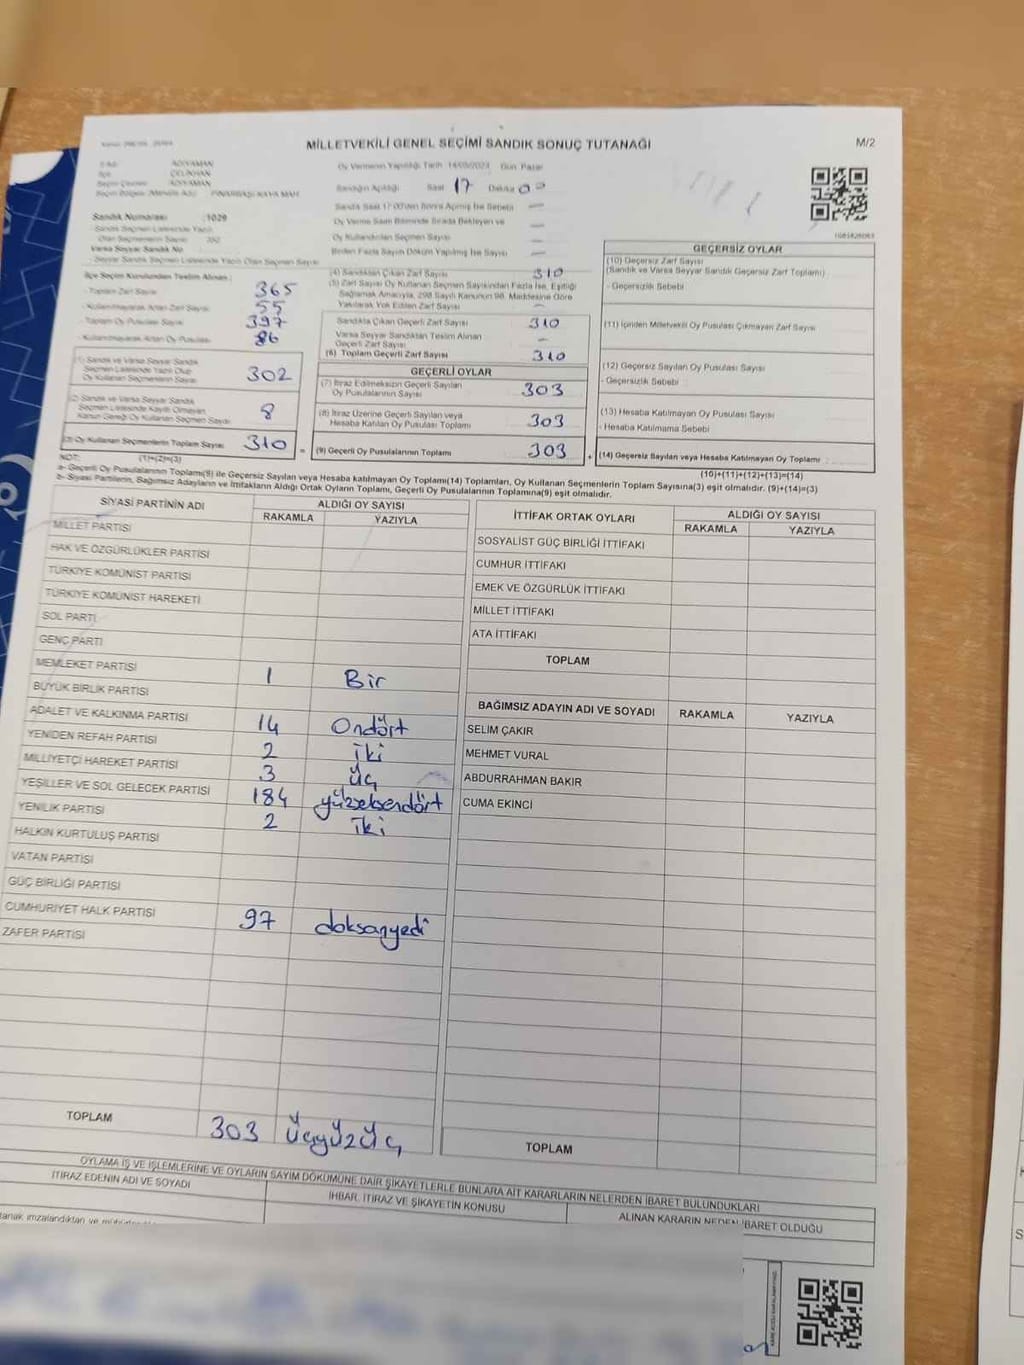 MİLLETVEKİLİ GENEL SEÇİMİ SANDIK SONUÇ TUTANAĞI
M/2
ADIYAMAN
ÇELİKHAN
ADIYAMAN
PINARBAŞI KAYA MAH
Oy Vermenin Yapıldığı Tarih 14/05/2023 Gün Pazar
Sandığın Açıldığı Saat 17 Dakika 00
Sandık Saat 17:00'den Sonra Açılmış İse Sebebi
Oy Verme Saati Bitiminde Sırada Bekleyen ve
Oy Kullandırılan Seçmen Sayısı
Birden Fazla Sayım Döküm Yapılmış İse Sayısı
Sandık Numarası : 1029
Sandık Seçmen Listesinde Yazılı
Olan Seçmenlerin Sayısı
Varsa Seyyar Sandık No
- Seyyar Sandık Seçmen Listesinde Yazılı Olan Seçmen Sayısı
İlçe Seçim Kurulundan Teslim Alınan :
- Toplam Zarf Sayısı 365
- Kullanılmayarak Artan Zarf Sayısı 55
- Toplam Oy Pusulası Sayısı 397
- Kullanılmayarak Artan Oy Pusulası 86
(1) Sandık ve Varsa Seyyar Sandık
Seçmen Listesinde Yazılı Olup
Oy Kullanan Seçmenlerin Sayısı 302
(2) Sandık ve Varsa Seyyar Sandık
Seçmen Listesinde Kayıtlı Olmayan
Kanun Gereği Oy Kullanan Seçmen Sayısı 8
(3) Oy Kullanan Seçmenlerin Toplam Sayısı 310
(1)+(2)=(3)
(4) Sandıktan Çıkan Zarf Sayısı 310
(5) Zarf Sayısı Oy Kullanan Seçmen Sayısından Fazla İse, Eşitliği
Sağlamak Amacıyla, 298 Sayılı Kanunun 98. Maddesine Göre
Yakılarak Yok Edilen Zarf Sayısı
Sandıkta Çıkan Geçerli Zarf Sayısı 310
Varsa Seyyar Sandıktan Teslim Alınan
Geçerli Zarf Sayısı
(6) Toplam Geçerli Zarf Sayısı 310
GEÇERLİ OYLAR
(7) İtiraz Edilmeksizin Geçerli Sayılan
Oy Pusulalarının Sayısı 303
(8) İtiraz Üzerine Geçerli Sayılan veya
Hesaba Katılan Oy Pusulası Toplamı 303
(9) Geçerli Oy Pusulalarının Toplamı 303
GEÇERSİZ OYLAR
(10) Geçersiz Zarf Sayısı
(Sandık ve Varsa Seyyar Sandık Geçersiz Zarf Toplamı)
- Geçersizlik Sebebi
(11) İçinden Milletvekili Oy Pusulası Çıkmayan Zarf Sayısı
(12) Geçersiz Sayılan Oy Pusulası Sayısı
- Geçersizlik Sebebi
(13) Hesaba Katılmayan Oy Pusulası Sayısı
- Hesaba Katılmama Sebebi
(14) Geçersiz Sayılan veya Hesaba Katılmayan Oy Toplamı :
(10)+(11)+(12)+(13)=(14)
NOT:
a- Geçerli Oy Pusulalarının Toplamı(9) ile Geçersiz Sayılan veya Hesaba katılmayan Oy Toplamı(14) Toplamları, Oy Kullanan Seçmenlerin Toplam Sayısına(3) eşit olmalıdır. (9)+(14)=(3)
b- Siyasi Partilerin, Bağımsız Adayların ve İttifakların Aldığı Ortak Oyların Toplamı, Geçerli Oy Pusulalarının Toplamına(9) eşit olmalıdır.
SİYASİ PARTİNİN ADI ALDIĞI OY SAYISI
RAKAMLA YAZIYLA
MİLLET PARTİSİ
HAK VE ÖZGÜRLÜKLER PARTİSİ
TÜRKİYE KOMÜNİST PARTİSİ
TÜRKİYE KOMÜNİST HAREKETİ
SOL PARTİ
GENÇ PARTİ
MEMLEKET PARTİSİ 1 Bir
BÜYÜK BİRLİK PARTİSİ
ADALET VE KALKINMA PARTİSİ 14 Ondört
YENİDEN REFAH PARTİSİ 2 iki
MİLLİYETÇİ HAREKET PARTİSİ 3 üç
YEŞİLLER VE SOL GELECEK PARTİSİ 184 yüzseksendört
YENİLİK PARTİSİ 2 iki
HALKIN KURTULUŞ PARTİSİ
VATAN PARTİSİ
GÜÇ BİRLİĞİ PARTİSİ
CUMHURİYET HALK PARTİSİ 97 doksanyedi
ZAFER PARTİSİ
TOPLAM 303 üçyüzüç
İTTİFAK ORTAK OYLARI ALDIĞI OY SAYISI
RAKAMLA YAZIYLA
SOSYALİST GÜÇ BİRLİĞİ İTTİFAKI
CUMHUR İTTİFAKI
EMEK VE ÖZGÜRLÜK İTTİFAKI
MİLLET İTTİFAKI
ATA İTTİFAKI
TOPLAM
BAĞIMSIZ ADAYIN ADI VE SOYADI RAKAMLA YAZIYLA
SELİM ÇAKIR
MEHMET VURAL
ABDURRAHMAN BAKIR
CUMA EKİNCİ
TOPLAM
OYLAMA İŞ VE İŞLEMLERİNE VE OYLARIN SAYIM DÖKÜMÜNE DAİR ŞİKAYETLERLE BUNLARA AİT KARARLARIN NELERDEN İBARET BULUNDUKLARI
İTİRAZ EDENİN ADI VE SOYADI
İHBAR, İTİRAZ VE ŞİKAYETİN KONUSU
ALINAN KARARIN NEDEN İBARET OLDUĞU